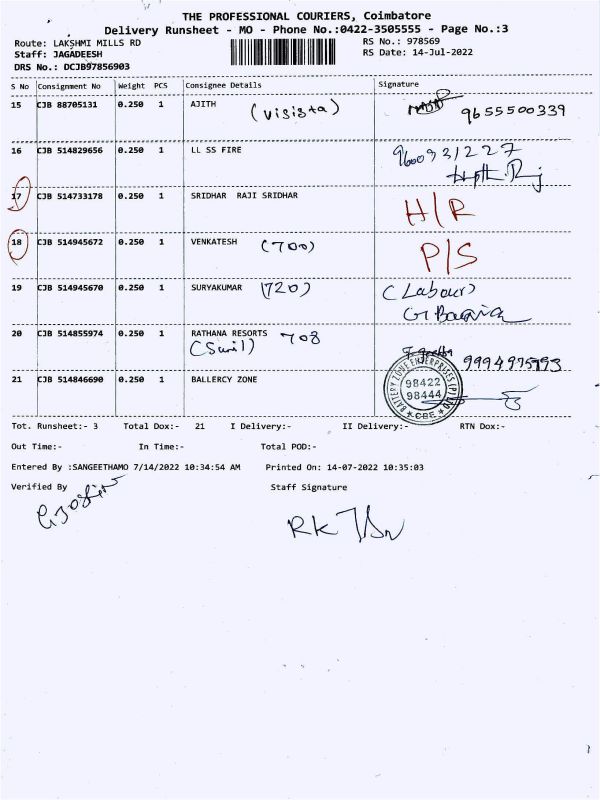 THE PROFESSIONAL COURIERS, Coimbatore
Delivery Runsheet - MO - Phone No.:0422-3505555 - Page No.:3
Route: LAKSHMI MILLS RD RS No.: 978569
Staff: JAGADEESH RS Date: 14-Jul-2022
DRS No.: DCJB97856903
S No Consignment No Weight PCS Consignee Details Signature
15 CJB 88705131 0.250 1 AJITH (visista) 9655500339
16 CJB 514829656 0.250 1 LL SS FIRE 9600931227
17 CJB 514733178 0.250 1 SRIDHAR RAJI SRIDHAR H/R
18 CJB 514945672 0.250 1 VENKATESH (700) P/S
19 CJB 514945670 0.250 1 SURYAKUMAR (720) (Labour)
20 CJB 514855974 0.250 1 RATHANA RESORTS 708 9994975793
(Sunil)
21 CJB 514846690 0.250 1 BALLERCY ZONE
BATTERY ZONE ENTERPRISES (P) LTD
98422
98444
★ CBE ★
Tot. Runsheet:- 3 Total Dox:- 21 I Delivery:- II Delivery:- RTN Dox:-
Out Time:- In Time:- Total POD:-
Entered By :SANGEETHAMO 7/14/2022 10:34:54 AM Printed On: 14-07-2022 10:35:03
Verified By Staff Signature
RK